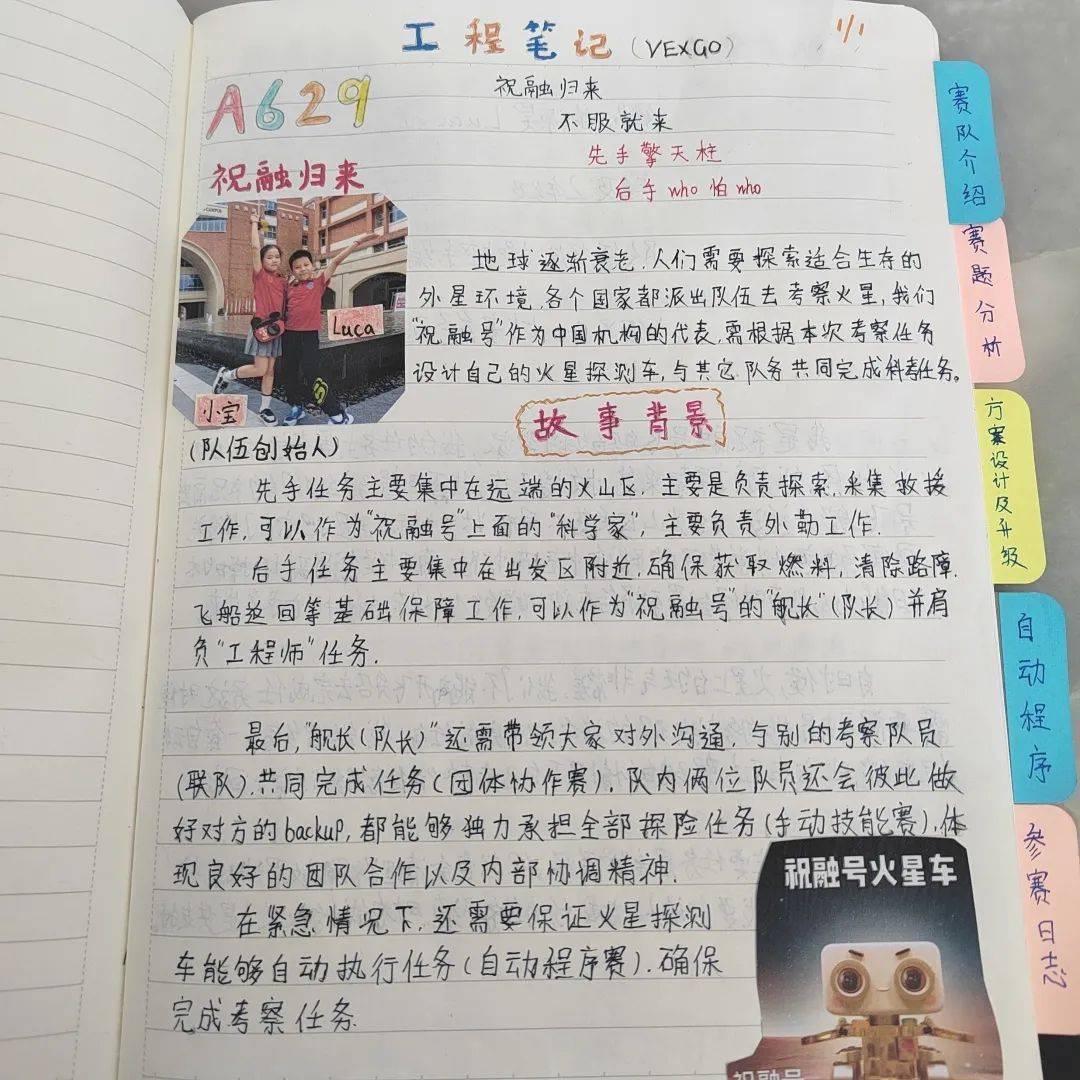 工程笔记(VEXGO)
1/1
A629
祝融归来
不服就来
先手擎天柱
后手who怕who
祝融归来
Luca
小宝
(队伍创始人)
地球逐渐衰老,人们需要探索适合生存的
外星环境,各个国家都派出队伍去考察火星,我们
"祝融号"作为中国机构的代表,需根据本次考察任务
设计自己的火星探测车,与其它队务共同完成科考任务。
故事背景
先手任务主要集中在远端的火山区,主要是负责探索,采集救援
工作,可以作为"祝融号"上面的"科学家",主要负责外勤工作.
后手任务主要集中在出发区附近,确保获取燃料,清除路障,
飞船返回等基础保障工作,可以作为"祝融号"的"舰长"(队长)并肩
负"工程师"任务.
最后,"舰长(队长)"还需带领大家对外沟通,与别的考察队员
(联队)共同完成任务(团体协作赛),队内俩位队员还会彼此做
好对方的backup,都能够独力承担全部探险任务(手动技能赛),体
现良好的团队合作以及内部协调精神.
在紧急情况下,还需要保证火星探测
车能够自动执行任务(自动程序赛),确保
完成考察任务.
祝融号火星车
祝融号
赛队介绍
赛题分析
方案设计及升级
自动程序
参赛日志